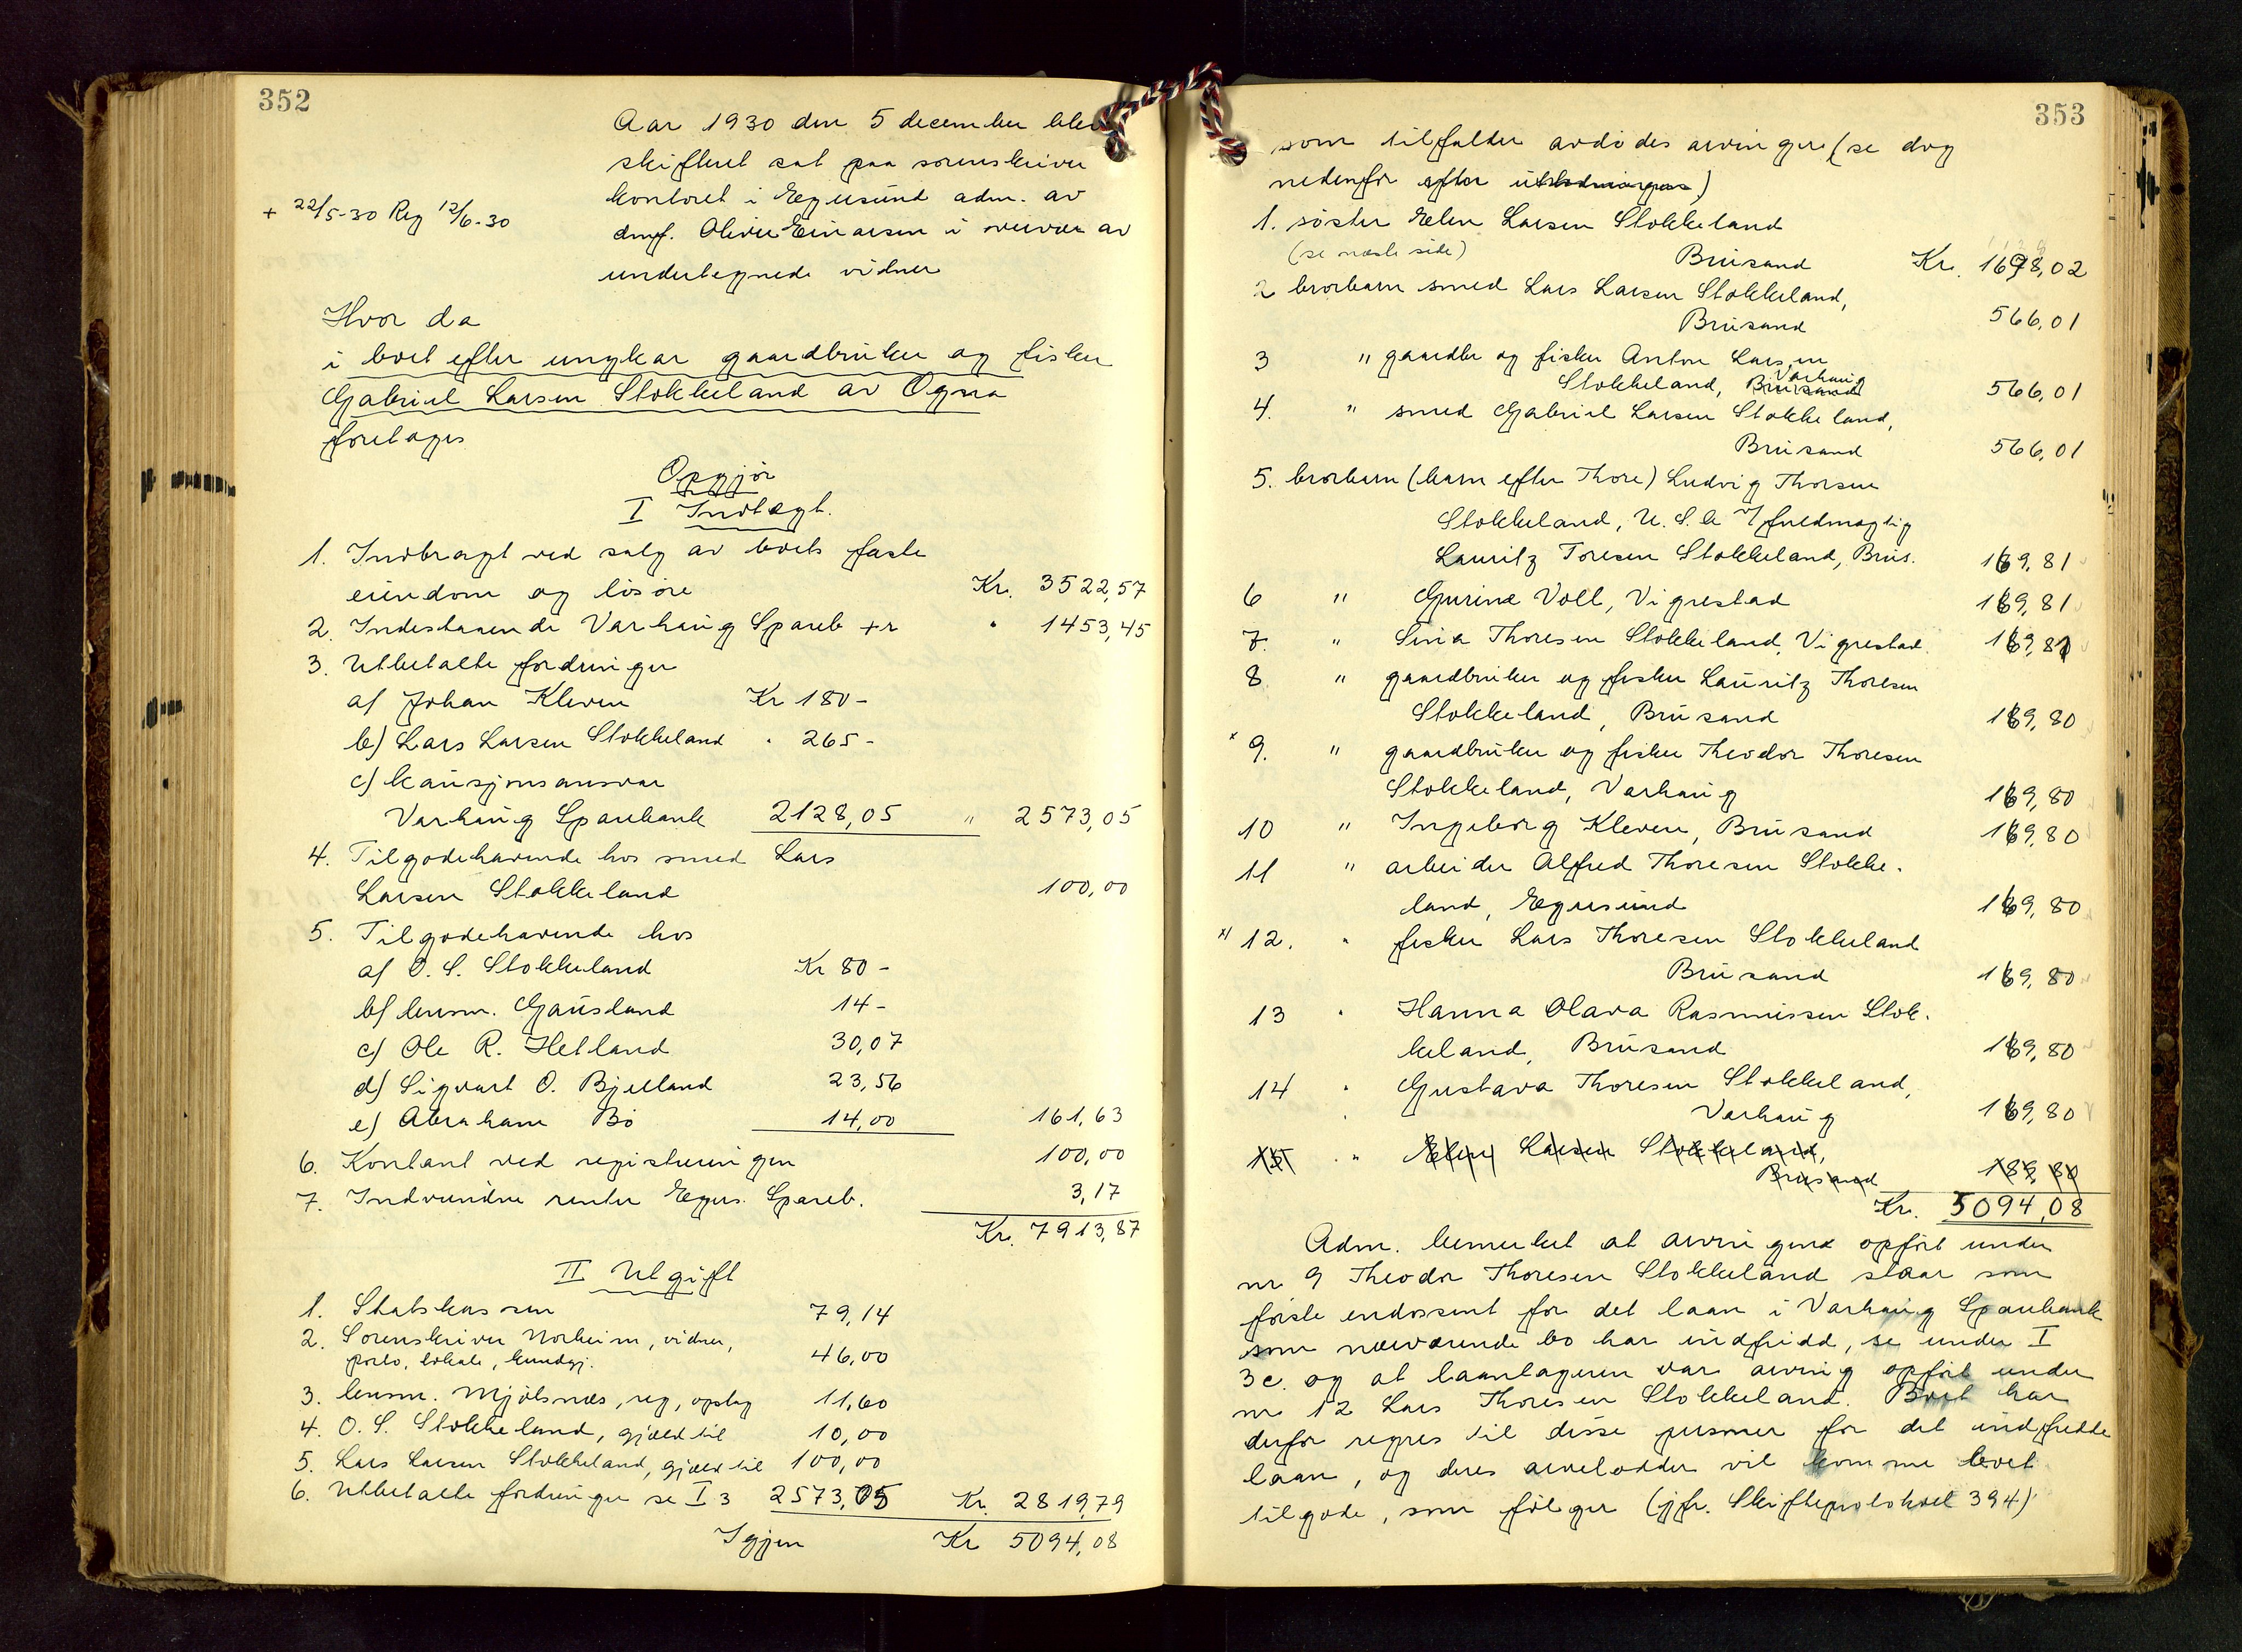 352
Aar 1930 den 5 december blev
skifteret sat paa sorenskriver
kontoret i Egersund adm. av
dmf. Oliver Einarsen i overvær av
undertegnede vidner
+ 22/5-30 Reg 12/6-30
Hvor da
i boet efter ungkar gaardbruker og fisker
Gabriel Larsen Stokkeland av Ogna
foretages
Opgjør
I Indtægt.
1. Indbragt ved salg av boets faste
eiendom og løsøre Kr. 3522,57
2. Indestaaende Varhaug Spareb +r " 1453,45
3. Utbetalte fordringer
a) Johan Kleven Kr 180 -
b) Lars Larsen Stokkeland " 265 -
c) kausjonsansvar
Varhaug Sparebank 2128,05 " 2573,05
4. Tilgodehavende hos smed Lars
Larsen Stokkeland 100,00
5. Tilgodehavende hos
a) O. S. Stokkeland Kr 80 -
b) lensm. Gausland 14 -
c) Ole R. Hetland 30,07
d) Sigvart O. Bjelland 23,56
e) Abraham Bø 14,00 161,63
6. Kontant ved registreringen 100,00
7. Indvundne renter Egers. Spareb. 3,17
Kr. 7913,87
II Utgift
1. Statskassen 79,14
2. Sorenskriver Norheim, vidner,
porto, lokale, kundgj. 46,00
3. lensm. Mjølsnes, reg, opstg 11,60
4. O. S. Stokkeland, gjæld til 10,00
5. Lars Larsen Stokkeland, gjæld til 100,00
6. Utbetalte fordringer se I 3 2573,05 Kr. 2819,79
Igjen Kr 5094,08
353
som tilfalder avdødes arvinger (se dog
nedenfor efter utlodningen)
1. søster Elen Larsen Stokkeland
(se næste side) Brusand Kr. 1698,02
2 brorbarn smed Lars Larsen Stokkeland,
Brusand 566,01
3 " gaardbr og fisker Anton Larsen
Stokkeland, Brusand Varhaug 566,01
4. " smed Gabriel Larsen Stokkeland,
Brusand 566,01
5. brorbarn (barn efter Thore) Ludvig Thorsen
Stokkeland, U. S. A v/ fuldmægtig
Lauritz Toresen Stokkeland, Brus. 169,81
6 " Gurine Voll, Vigrestad 169,81
7. " Sina Thoresen Stokkeland, Vigrestad 169,81
8 " gaardbruker og fisker Lauritz Thoresen
Stokkeland, Brusand 169,80
x 9. " gaardbruker og fisker Theodor Thoresen
Stokkeland, Varhaug 169,80
10 " Ingeborg Kleven, Brusand 169,80
11 " arbeider Alfred Thoresen Stokke-
land, Egersund 169,80
x) 12. " fisker Lars Thoresen Stokkeland
Brusand 169,80
13 " Hanna Olava Rasmussen Stok-
keland, Brusand 169,80
14 " Gustava Thoresen Stokkeland,
Varhaug 169,80
15 " Elen Larsen Stokkeland,
Brusand 189,80
Kr. 5094,08
Adm. bemerket at arvingene opført under
nr 9 Theodor Thoresen Stokkeland staar som
første endossent for det laan i Varhaug Sparebank
som nærværende bo har indfridd, se under I
3c. og at laantageren var arving opført under
nr 12 Lars Thoresen Stokkeland. Boet har
derfor regres til disse personer for det indfridde
laan, og deres arvelodder vil komme boet
tilgode, som følger (jfr. Skifteprotokol 394)